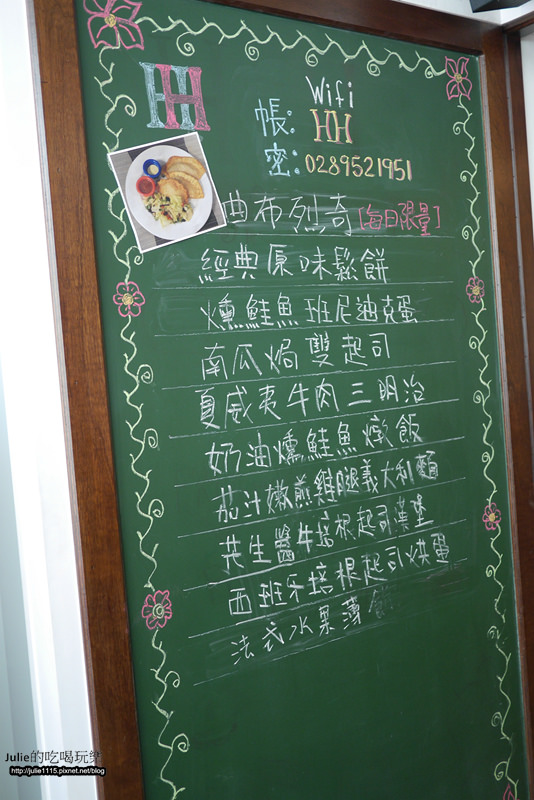 HH
Wifi
帳: HH
密: 0289521951
曲布烈奇 [每日限量]
經典原味鬆餅
燻鮭魚班尼迪克蛋
南瓜焗雙起司
夏威夷牛肉三明治
奶油燻鮭魚燉飯
茄汁嫩煎雞腿義大利麵
花生醬牛培根起司漢堡
西班牙培根起司烘蛋
法式水果薄餅
Julie的吃喝玩樂
http://julie1115.pixnet.net/blog